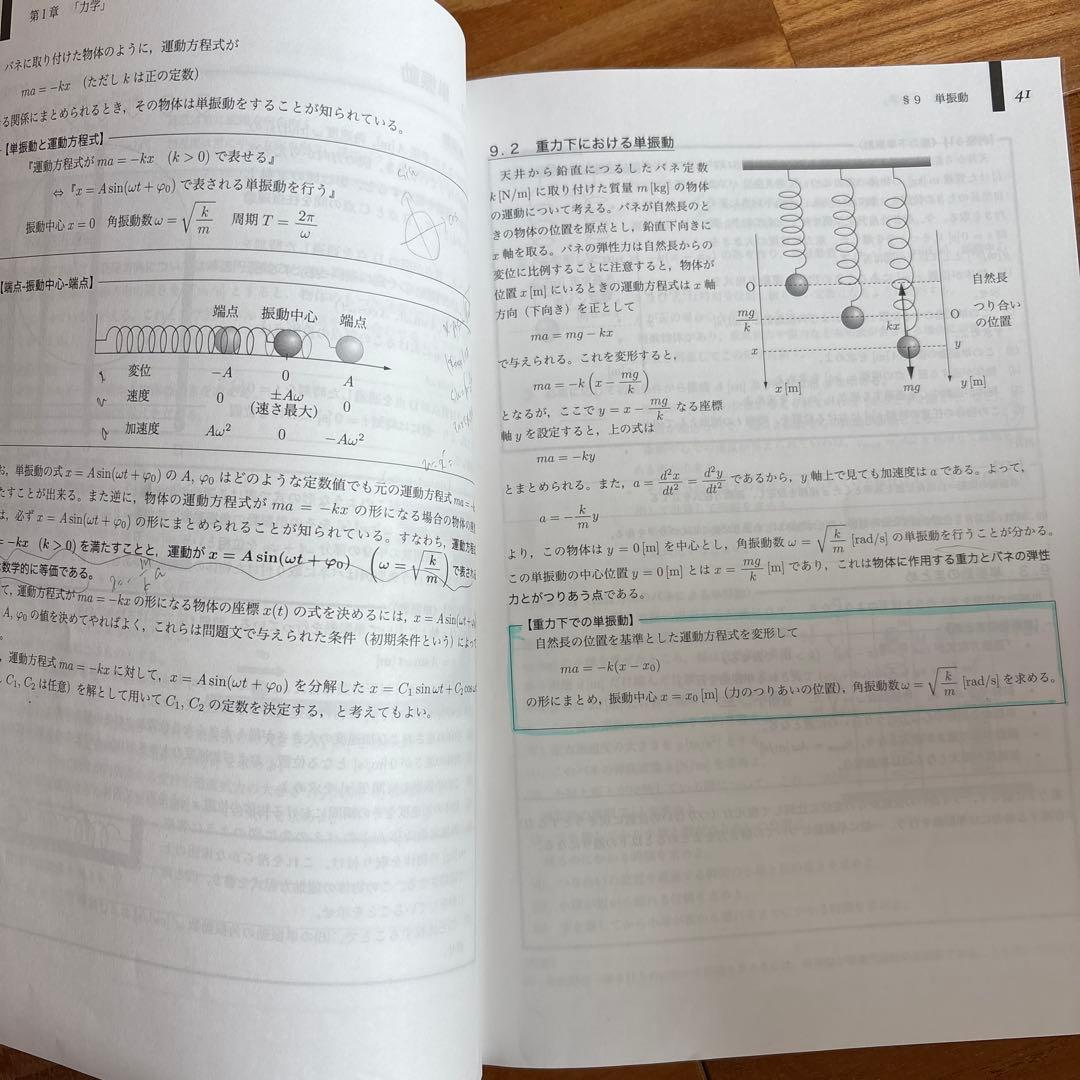 第I章 「力学」
バネに取り付けた物体のように，運動方程式が
ma = −kx (ただし k は正の定数)
る関係にまとめられるとき，その物体は単振動をすることが知られている。
【単振動と運動方程式】
『運動方程式が ma = −kx (k > 0) で表せる』
⇔『x = A sin(ωt + φ₀) で表される単振動を行う』
振動中心 x = 0 角振動数 ω = √(k/m) 周期 T = 2π/ω
【端点-振動中心-端点】
端点 振動中心 端点
変位 −A 0 A
速度 0 ±Aω 0
(速さ最大)
加速度 Aω² 0 −Aω²
お，単振動の式 x = A sin(ωt + φ₀) の A, φ₀ はどのような定数値でも元の運動方程式 ma =
たすことが出来る。また逆に，物体の運動方程式が ma = −kx の形になる場合の物体の
は，必ず x = A sin(ωt + φ₀) の形にまとめられることが知られている。すなわち，運動方程
= −kx (k > 0) を満たすことと，運動が x = A sin(ωt + φ₀) (ω = √(k/m)) で表され
数学的に等価である。
て，運動方程式が ma = −kx の形になる物体の座標 x(t) の式を決めるには，x = A sin(ωt +
A, φ₀ の値を決めてやればよく，これらは問題文で与えられた条件（初期条件という）によっ
，運動方程式 ma = −kx に対して，x = A sin(ωt + φ₀) を分解した x = C₁ sin ωt + C₂ cos ωt
C₁, C₂ は任意）を解として用いて C₁, C₂ の定数を決定する，と考えてもよい。
§9 単振動 41
9.2 重力下における単振動
天井から鉛直につるしたバネ定数
k [N/m] に取り付けた質量 m [kg] の物体
の運動について考える。バネが自然長のと
きの物体の位置を原点とし，鉛直下向きに
x 軸を取る。バネの弾性力は自然長からの
変位に比例することに注意すると，物体が
位置 x [m] にいるときの運動方程式は x 軸
方向（下向き）を正として
ma = mg − kx
で与えられる。これを変形すると，
ma = −k(x − mg/k)
となるが，ここで y = x − mg/k なる座標
軸 y を設定すると，上の式は
ma = −ky
O 自然長
mg/k O つり合い
の位置
kx
x y
x [m] mg y [m]
とまとめられる。また，a = d²x/dt² = d²y/dt² であるから，y 軸上で見ても加速度は a である。よって，
a = −(k/m)y
より，この物体は y = 0 [m] を中心とし，角振動数 ω = √(k/m) [rad/s] の単振動を行うことが分かる。
この単振動の中心位置 y = 0 [m] とは x = mg/k [m] であり，これは物体に作用する重力とバネの弾性
力とがつりあう点である。
【重力下での単振動】
自然長の位置を基準とした運動方程式を変形して
ma = −k(x − x₀)
の形にまとめ，振動中心 x = x₀ [m]（力のつりあいの位置），角振動数 ω = √(k/m) [rad/s] を求める。